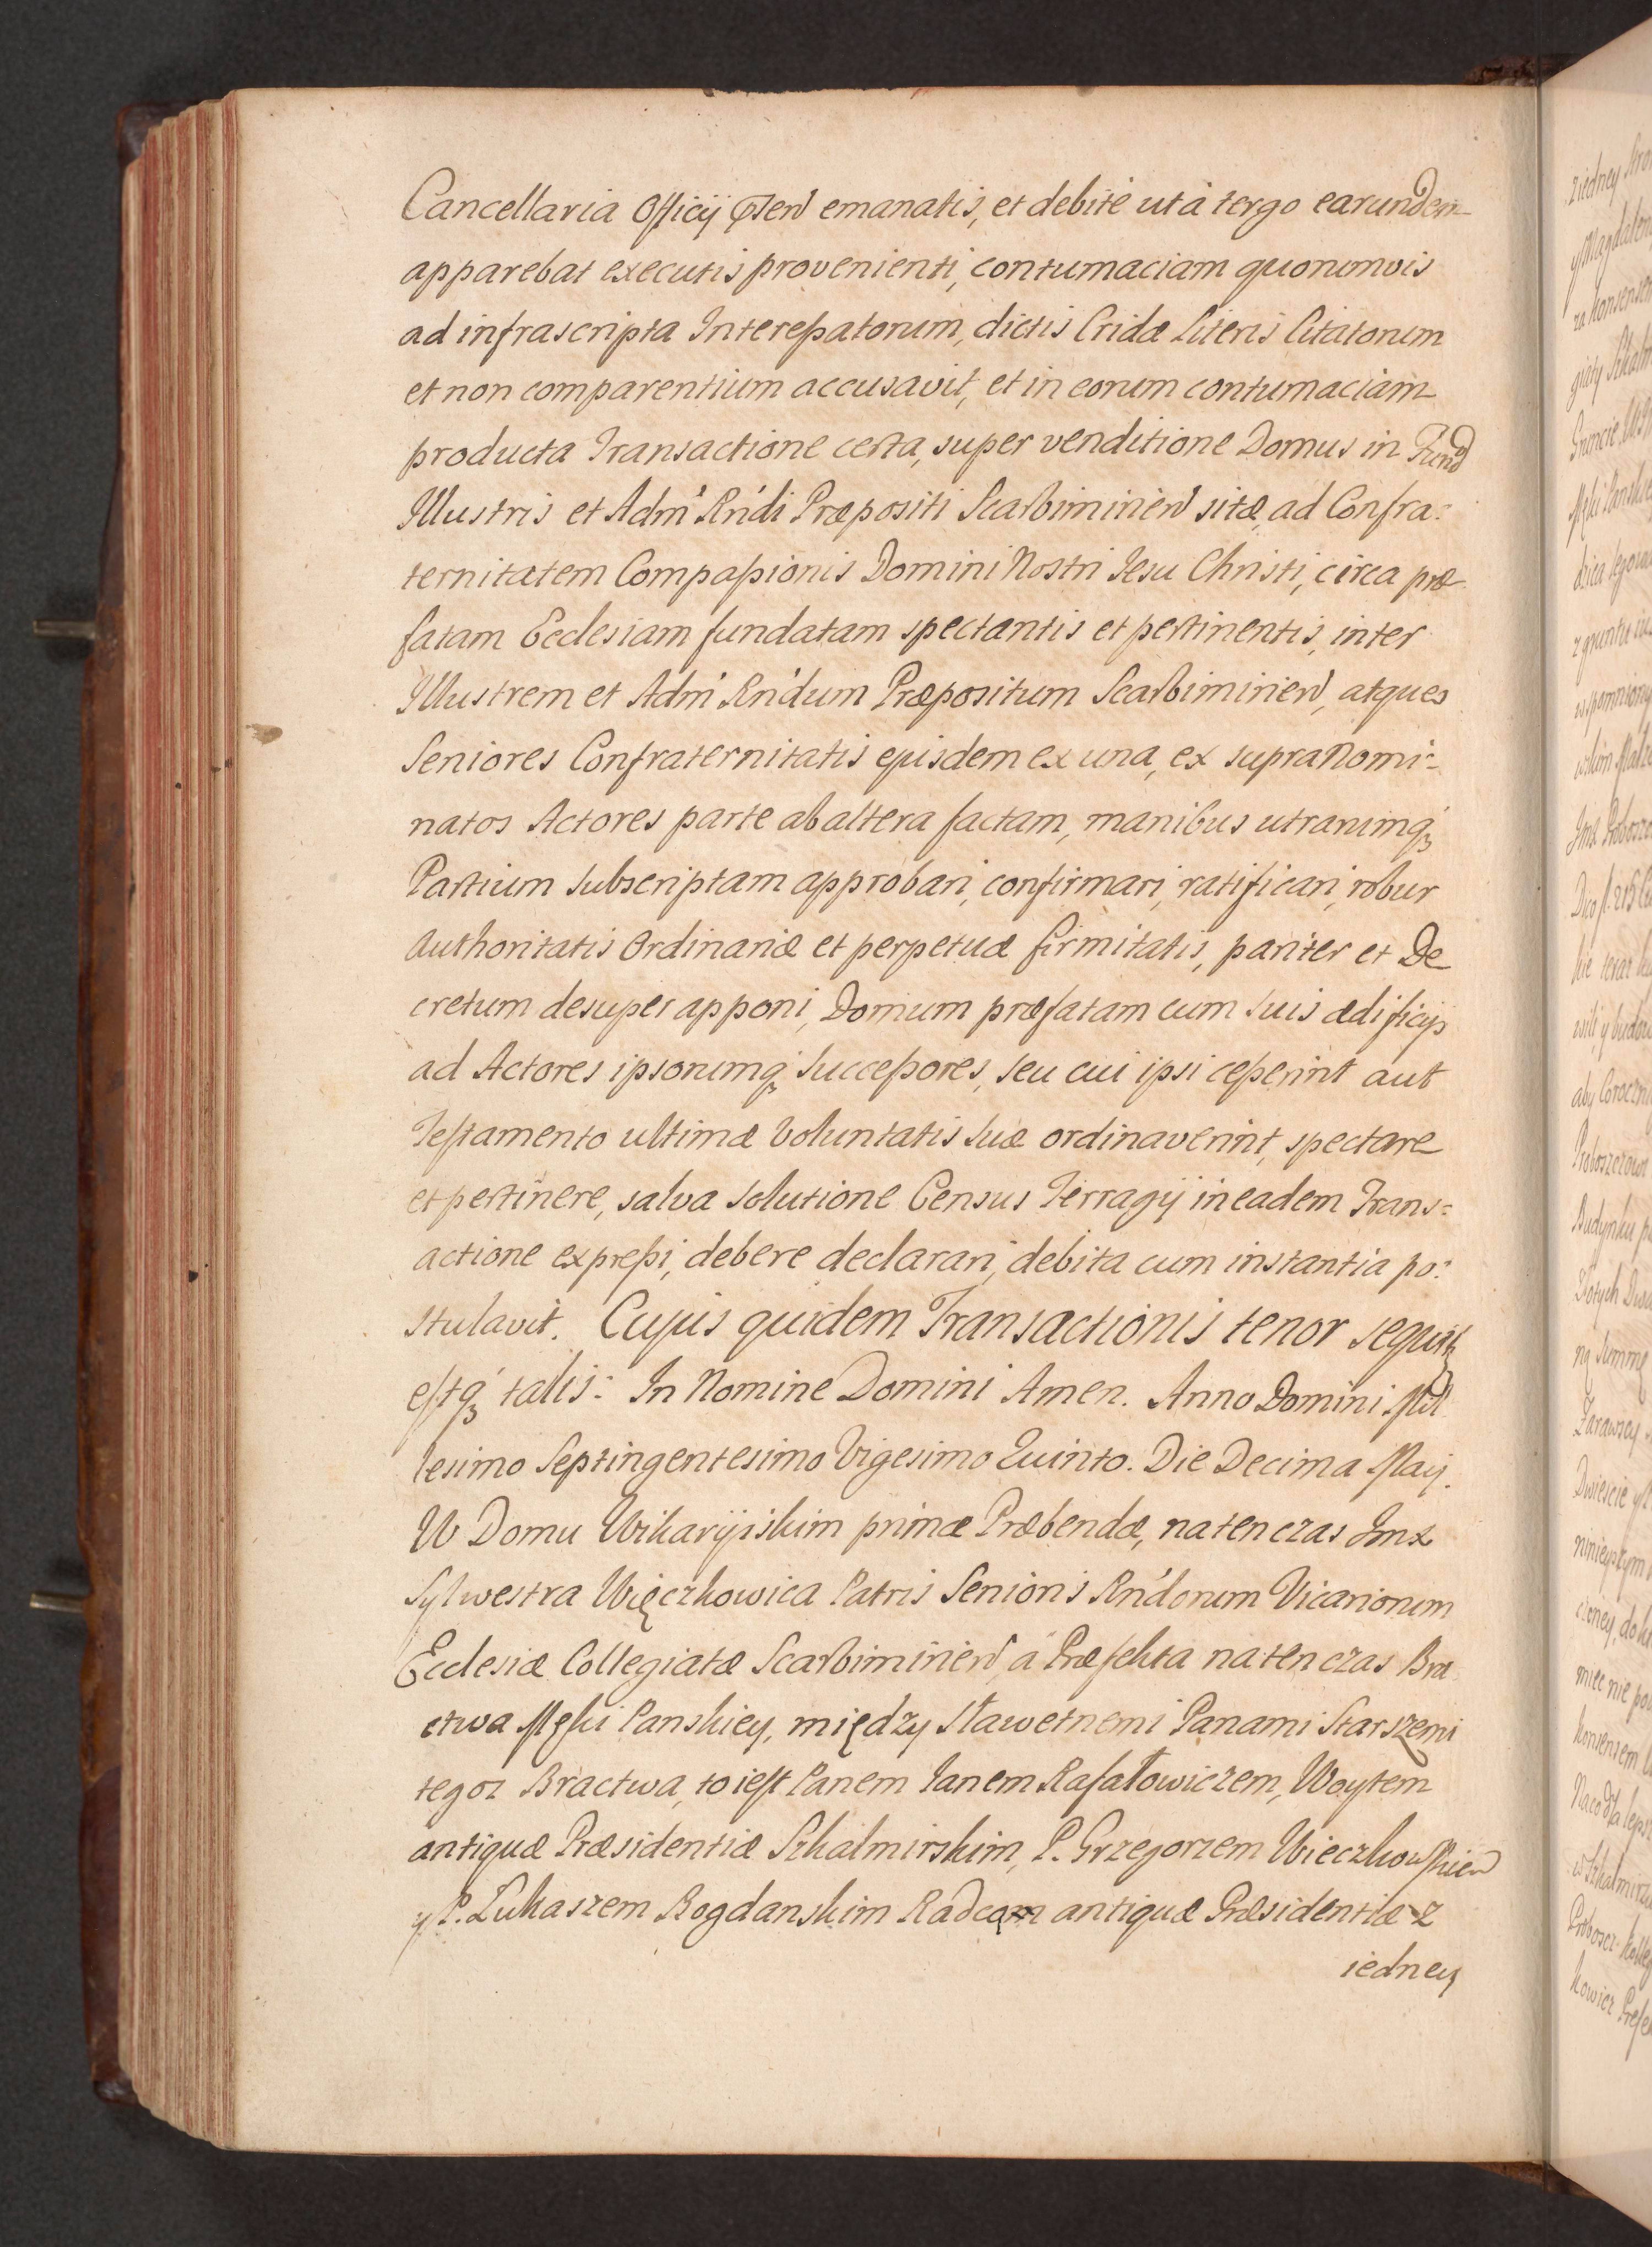 Cancellaria Officij emanatis, et debité ut á tergo earundem
apparebat executis provenienti, contumaciam quorumvis
ad infrascripta Interessatorum, dictis Cridæ Literis Citatorum
et non comparentium accusavit, et in eorum contumaciam
producta Transactione certa, super venditione Domus in Fund
Illustris et Adm Rndi Præpositi Scarbimirien sitæ, ad Confra:
ternitatem Compassionis Domini Nostri Iesu Christi, circa præ
fatam Ecclesiam fundatam spectantis et pertinentis, inter
Illustrem et Adm Rndum Præpositum Scarbimirien, atque
Seniores Confraternitatis ejusdem ex una, ex supra Nomi:
natos Actores parte ab altera factam, manibus utrarumq
Partium subscriptam approbari, confirmari, ratificari, robur
authoritatis Ordinariæ et perpetuæ firmitatis, pariter et De
cretum desuper apponi, Domum præfatam cum suis ædificijs
ad Actores ipsorumq Successores, seu cui ipsi cesserint aut
Testamento ultimæ voluntatis suæ ordinaverint, spectare
et pertinere, salva solutione Census Terragij in eadem Trans:
actione expressi, debere declarari, debita cum instantia po:
stulavit. Cujus quidem Transactionis tenor sequit
estq talis: In Nomine Domini Amen. Anno Domini Mil
lesimo Septingentesimo Vigesimo Quinto. Die Decima Maij.
W Domu Wikaryiskim primæ Præbendæ, natenczas Jmx
Sylwestra Więczkowica Patris Senioris Rndorum Vicariorum
Ecclesiæ Collegiatæ Scarbimirien, a Præfekta natenczas Bra
ctwa Męki Panskiey, między Sławetnemi Panami Starszemi
tegoz Bractwa, to iest Panem Ianem Rafałowiczem, Woytem
antiquæ Præsidentiæ Szkalmirskim, P. Grzegorzem Wieczkowskiem
y P. Łukaszem Bogdanskim Radcą antiquæ Præsidentiæ z
iedney